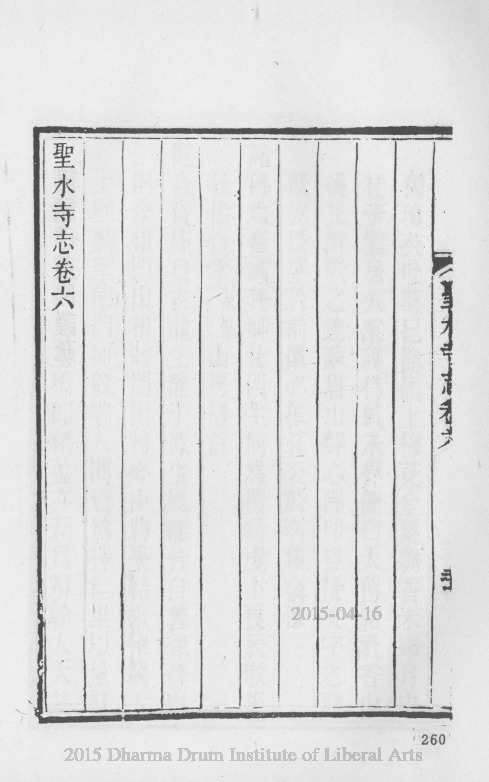 聖水寺志卷六
聖水寺志卷六
2015-04-16
260
2015 Dharma Drum Institute of Liberal Arts